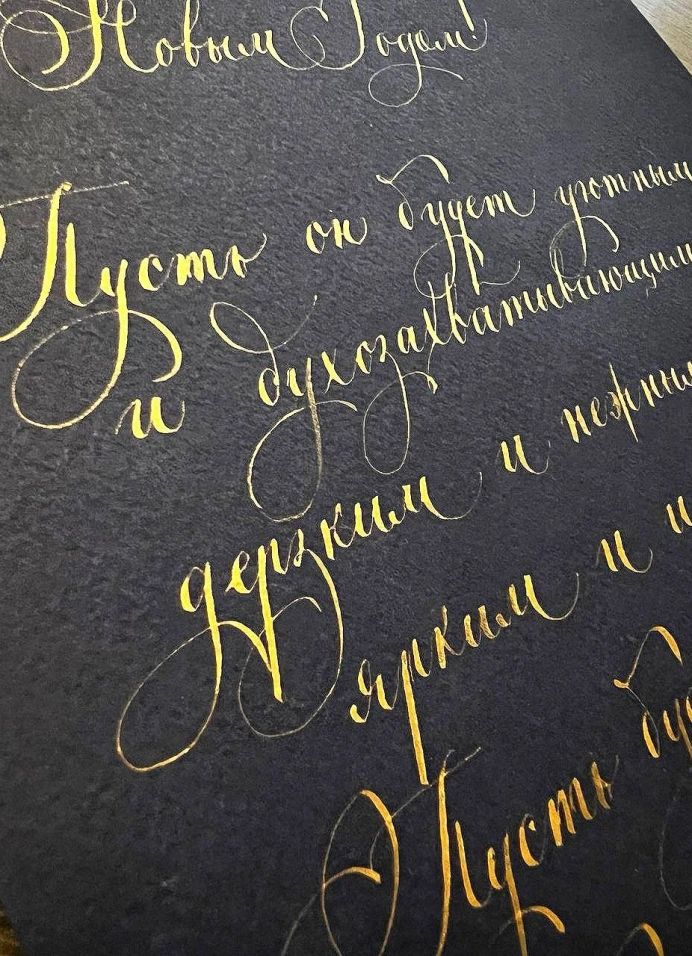 Новым Годом!
Пусть он будет уютным
и духозахватывающим
дерзким и нежным
ярким и и
Пусть